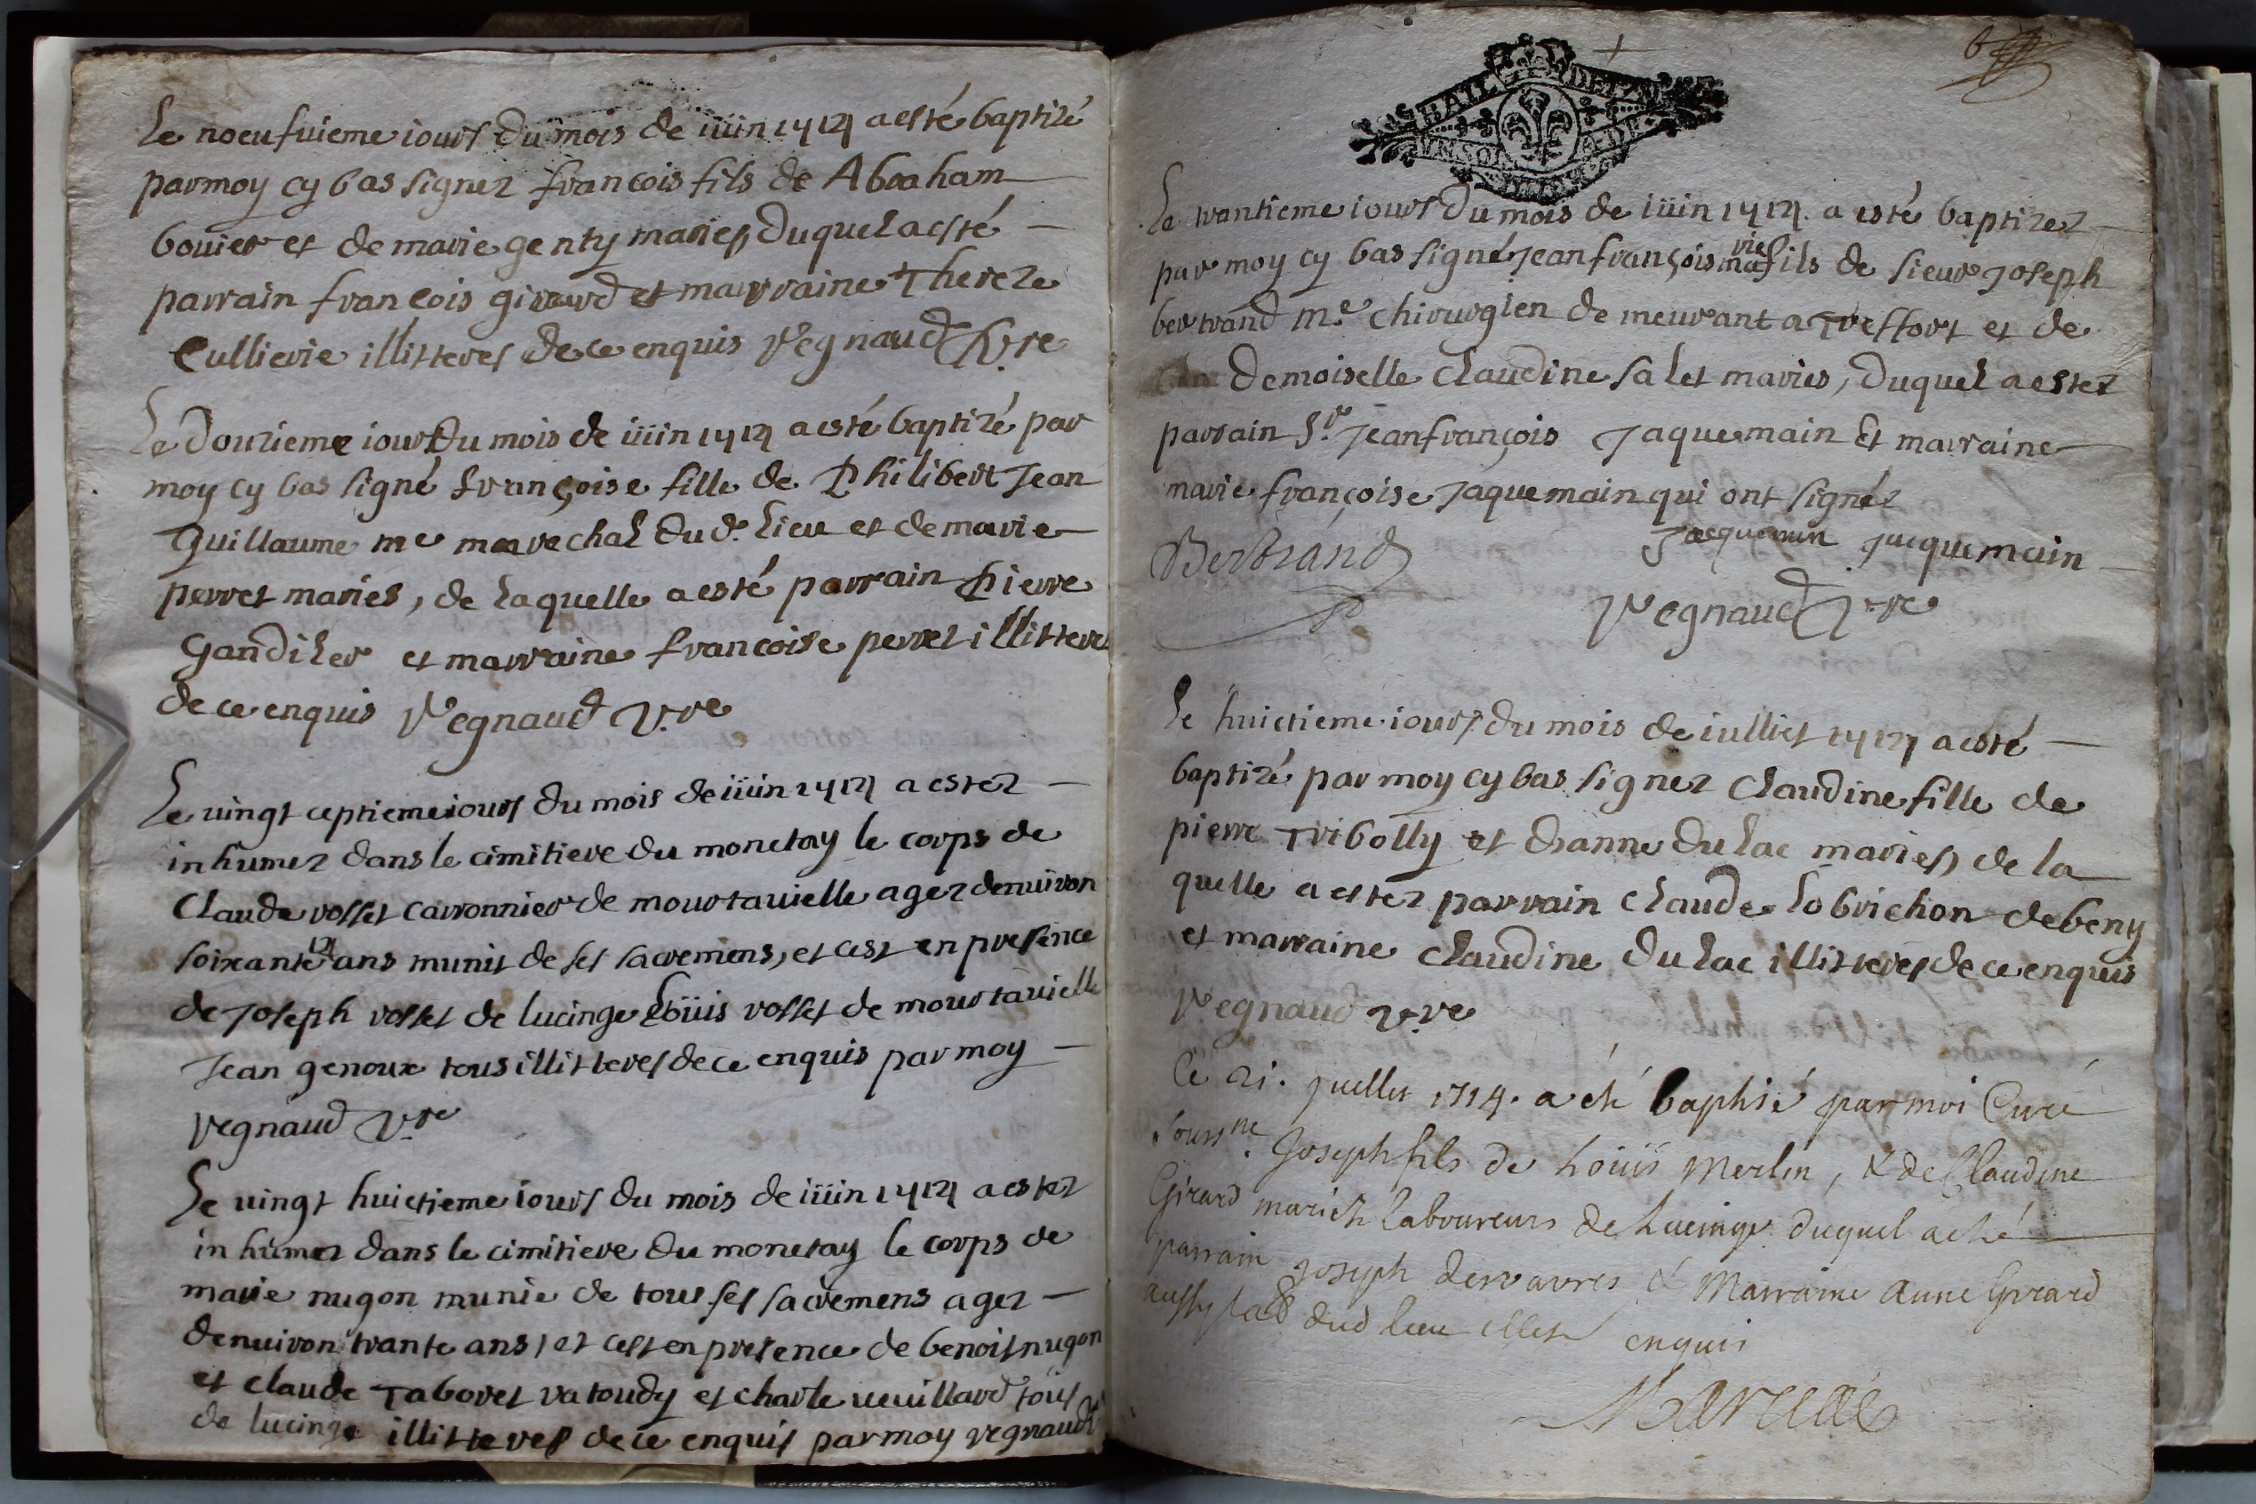 Le noeufuieme iours du mois de iüin 1714 a esté baptizé
par moy cy bas signez francois fils de Abraham
bouier et de marie genty maries duquel a esté
parrain francois girard et marraine Thereze
Cullierie illitteres de ce enquis Regnaud v.re
Le douzieme iours du mois de iüin 1714 a esté baptizé par
moy cy bas signé françoise fille de Philibert Jean
Guillaume me marechal du d. lieu et de marie
perret maries, de laquelle a esté parrain pierre
Gandiler et marraine francoise perret illittere
de ce enquis Regnaud v.re
Le uingt ceptieme iours du mois de iüin 1714 a estez
inhumez dans le cimitiere du monetay le corps de
Claude rosset carronnier de mourtauielle agez denuiron
soixante ans munit de ses sacremens, et cest en presence
de Joseph rosset de lucinge Loüis rosset de mourtauielle
Jean genoux tous illitteres de ce enquis par moy
regnaud v.re
Le uingt huictieme iours du mois de iüin 1714 a estez
inhumez dans le cimitiere du monetay le corps de
marie nugon munie de tous ses sacremens agez
denuiron trante ans, et cest en presence de benoist nugon
et claude Taboret ratoudy et charle ueuillard tous
de lucinge illitteres de ce enquis par moy regnaud
BAIL DE
UN SOL
Le trantieme iours du mois de iüin 1714 a esté baptizez
par moy cy bas signé Jean françois marie fils de sieur Joseph
bertrand me chirurgien de meurant a Treffort et de
demoiselle Claudine salet maries, duquel a estez
parrain Sr Jean françois Jaquemain Et marraine
marie françoise Jaquemain qui ont signéz
Bertrand Jacquemin Jacquemain
Regnaud v.re
Le huictieme iours du mois de iulliet 1714 a esté
baptizé par moy cy bas signez Claudine fille de
pierre Tribolly et dianne du lac maries de la
quelle a estez parrain Claude Lobrichon de beny
et marraine Claudine du lac illitteres de ce enquis
Regnaud v.re
Ce 21. juillet 1714. a eté baptisé par moi Curé
souss.ne Joseph fils de Loüis Merlin, & de Claudine
Girard mariés laboureurs de Lucinge duquel a eté
parrain joseph deruaures & Marraine Anne Girard
aussy lab dud lieu illet enquis